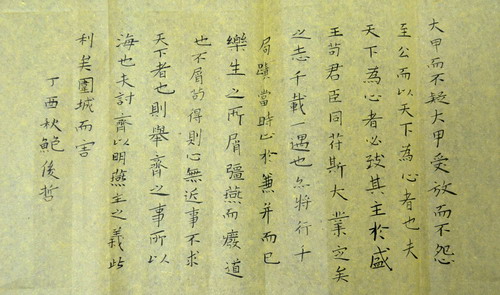 大甲而不疑大甲受放而不怨
至公而以天下為心者也夫
天下為心者必致其主於盛
王苟君臣同苻斯大業定矣
之志千載一遇也亦將行千
局蹟當時止於兼并而已
樂生之所屑彊燕而廢道
也不屑苟得則心無近事不求
天下者也則舉齊之事所以
海也夫討齊以明燕主之義此
利矣圍城而害
丁酉秋鮑俊哲